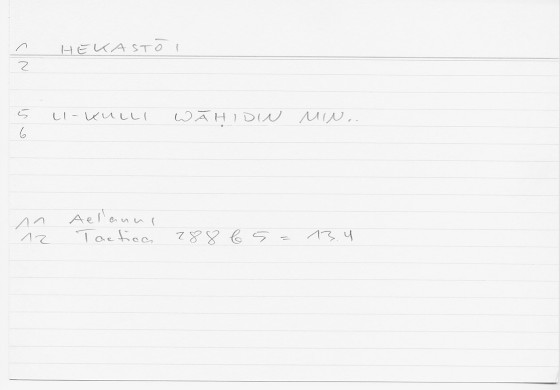 1 HEKASTŌI
2
5 LI-KULLI WĀḤIDIN MIN..
6
11 Ael'anus
12 Tactica 288 b 5 = 13.4